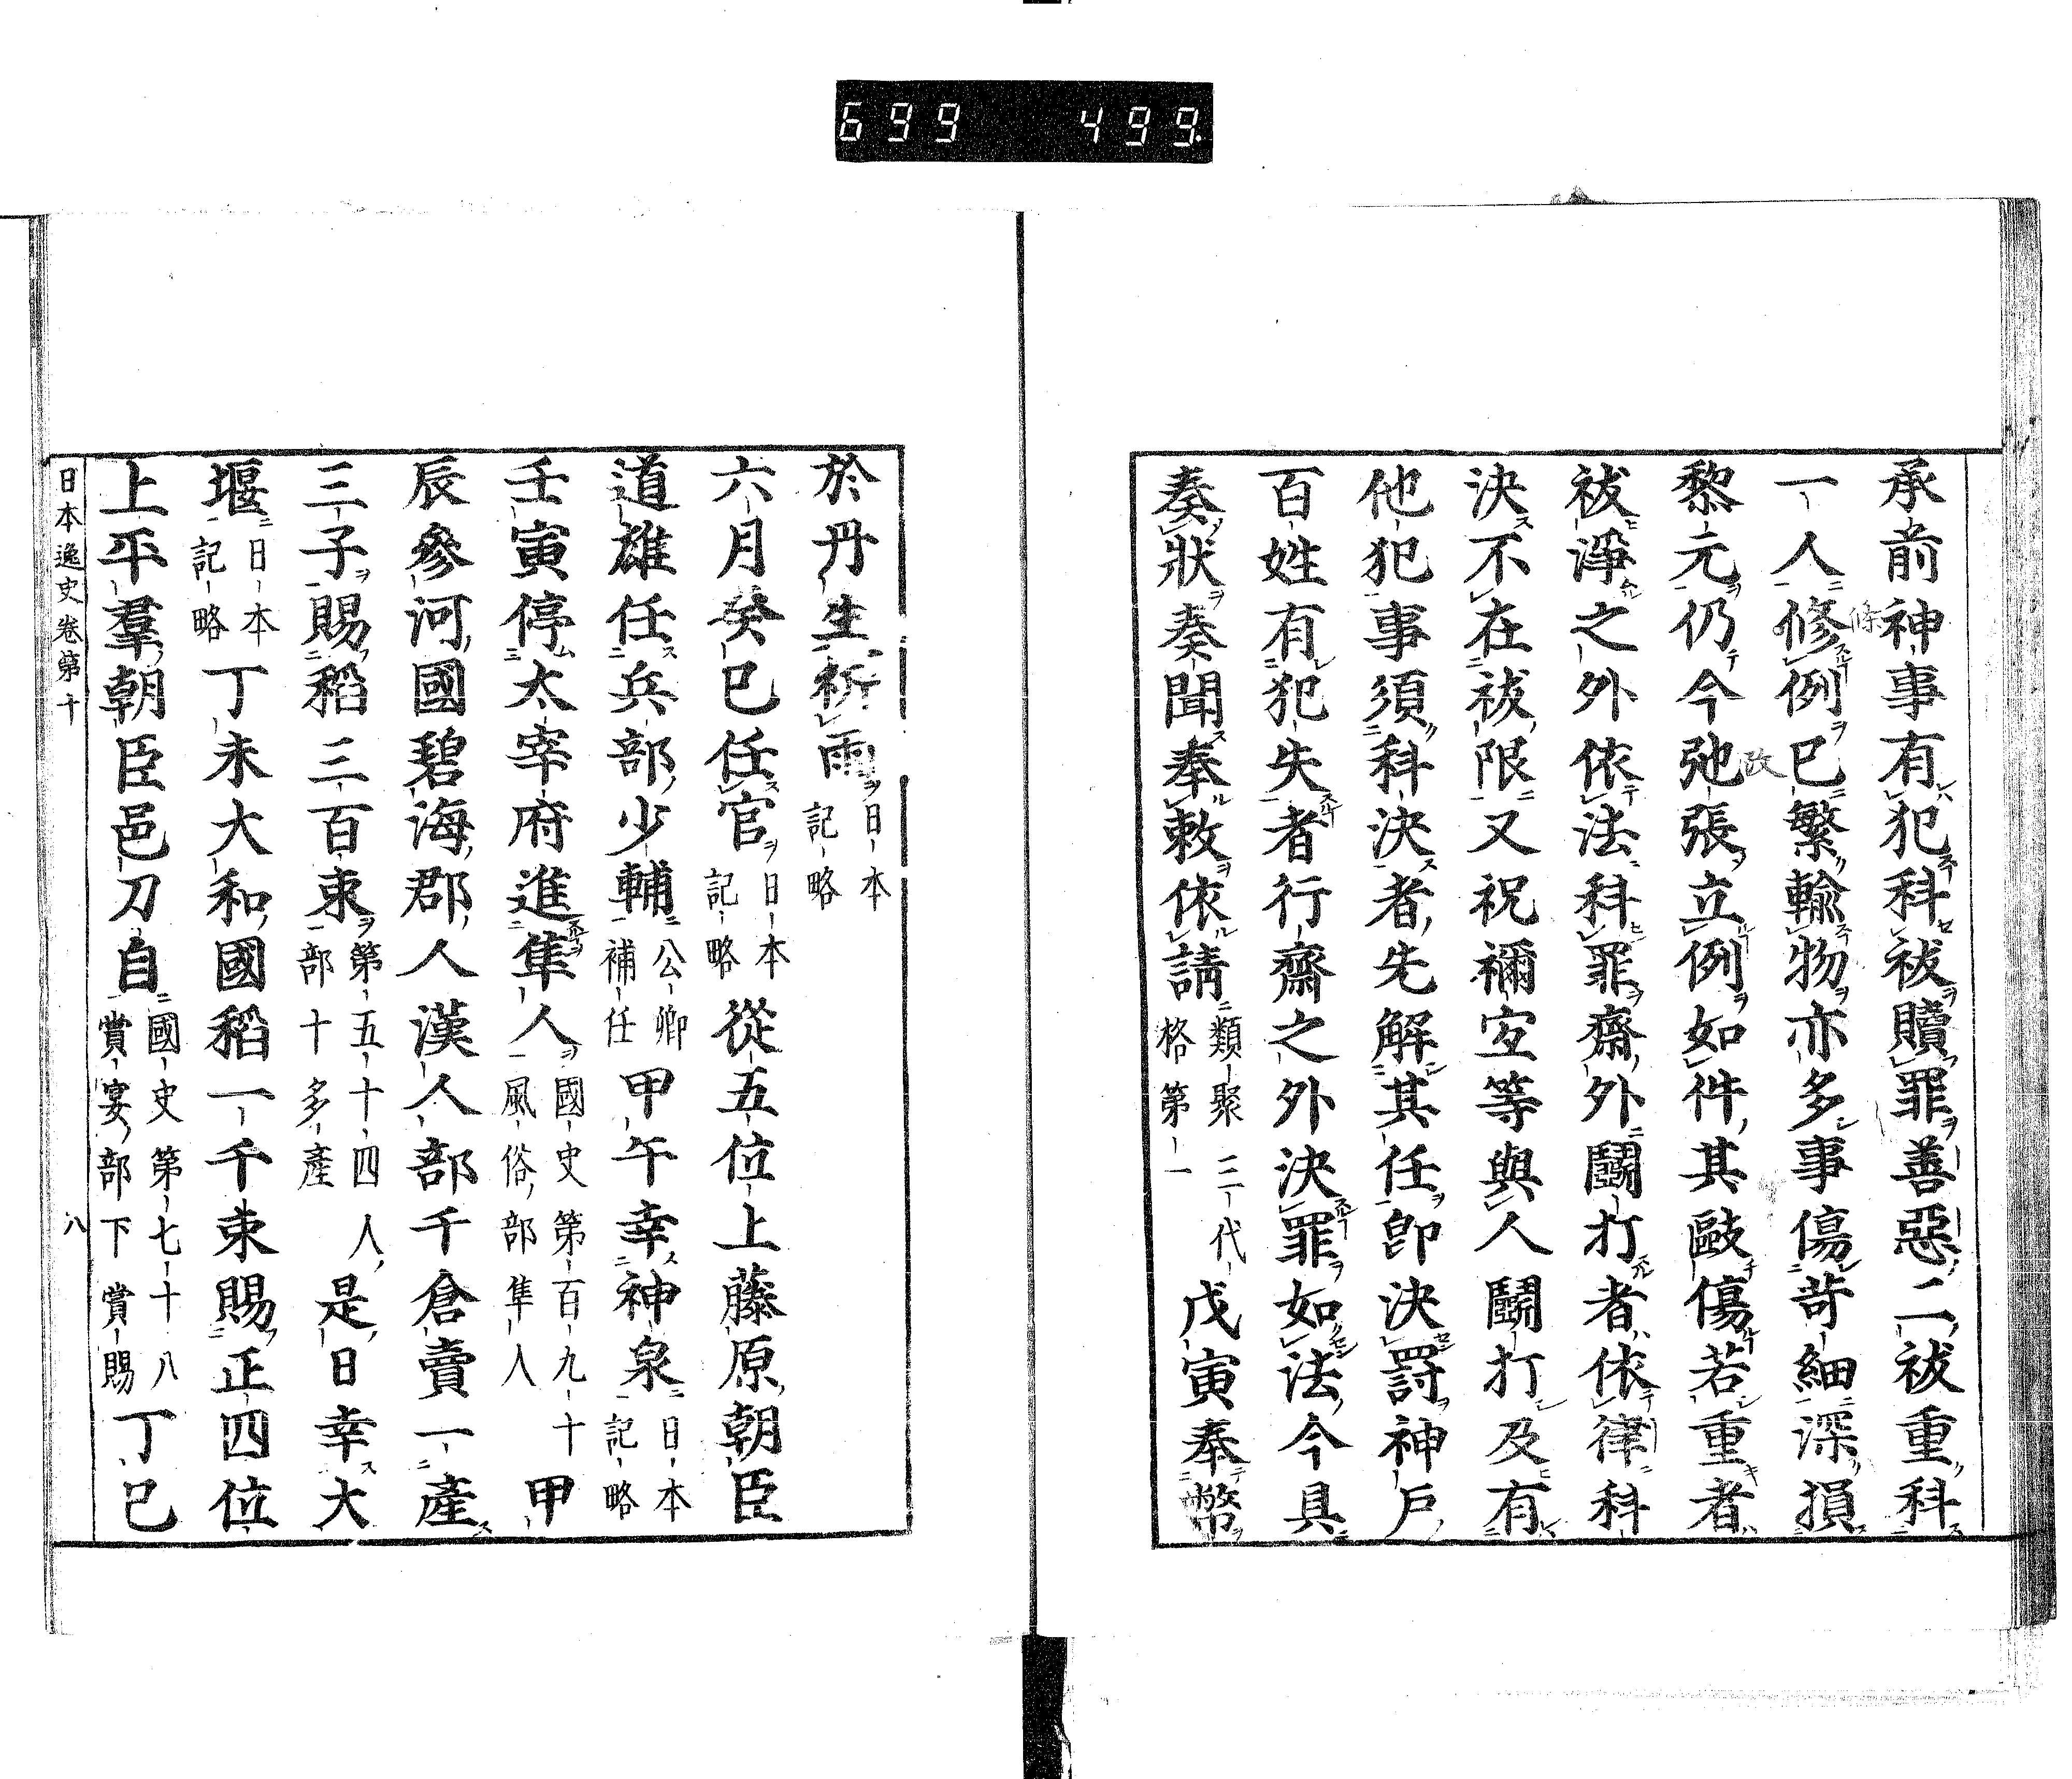 699 499
承前神事有犯科祓贖罪善惡二祓重科
一人修例已繁輸物亦多事傷苛細深損
條
黎元仍今弛張立例如件其毆傷若重者
改
祓淨之外依法科罪齋外鬪打者依律科
決不在祓限又祝禰宜等與人鬪打及有
他犯事須科決者先解其任卽決罰神戶
百姓有犯失者行齋之外決罪如法今具
奏狀奏聞奉敕依請類聚三代格第一戊寅奉幣
於丹生祈雨日本記略
六月癸巳任官日本記略從五位上藤原朝臣
道雄任兵部少輔公卿補任甲午幸神泉日本記略
壬寅停太宰府進隼人國史第百九十風俗部隼人甲
辰參河國碧海郡人漢人部千倉賣一產
三子賜稻三百束第五十四部十多產人是日幸大
堰日本記略丁未大和國稻一千束賜正四位
上平羣朝臣邑刀自國史第七十八賞宴部下賞賜丁巳
日本逸史卷第十 八